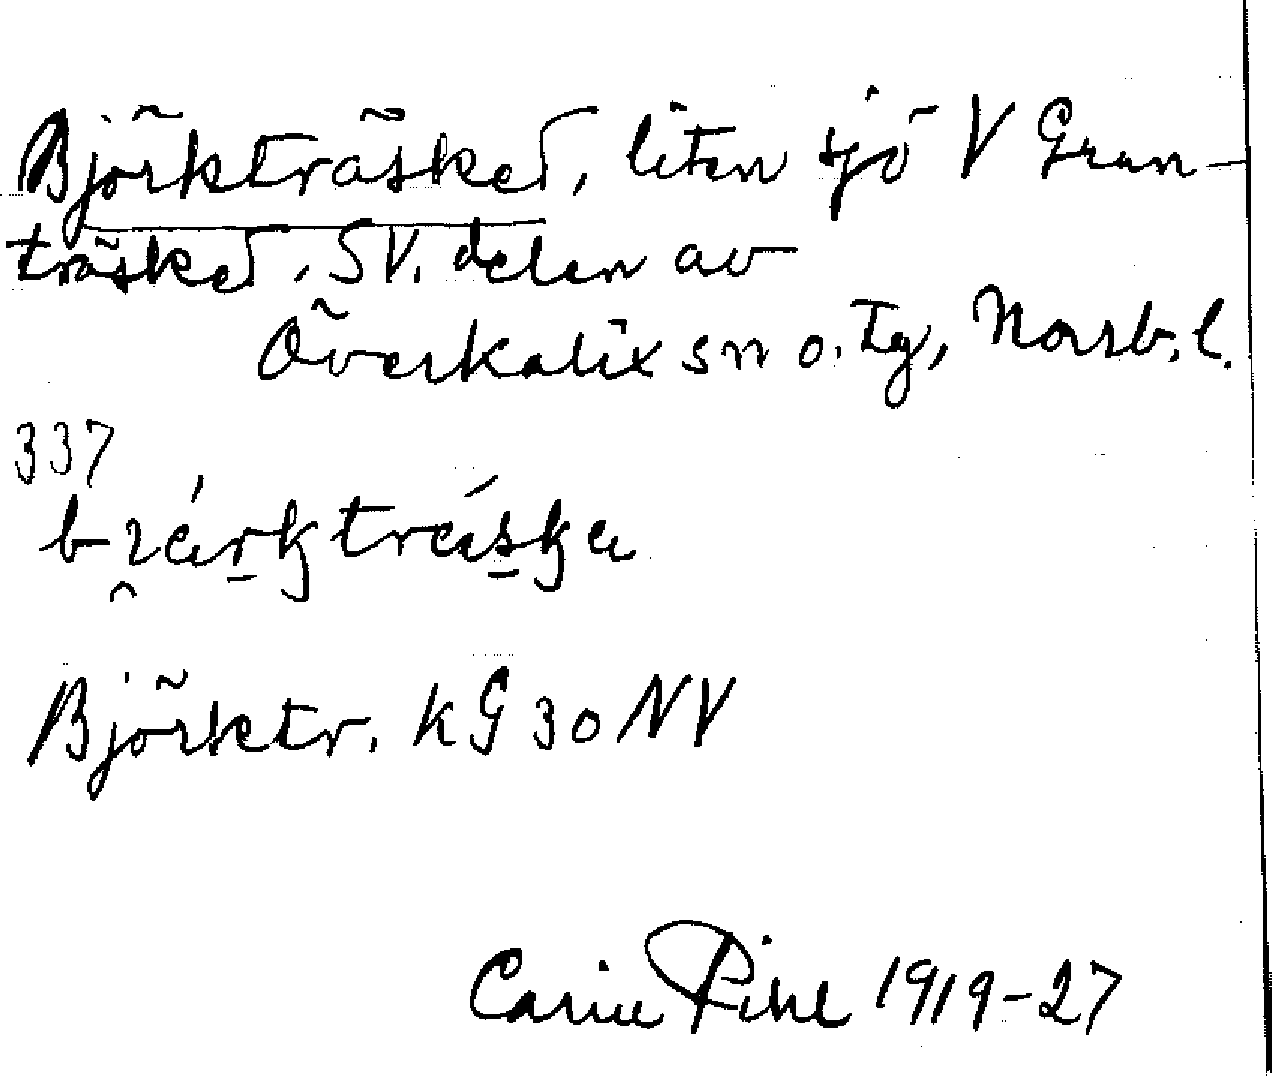 Björkträsket, liten sjö V Gran-
träsket, SV. delen av
Överkalix sn o. Tg, Norrb. l.
337
Björktr. KG 30 NV
Carin Pihl 1919-27